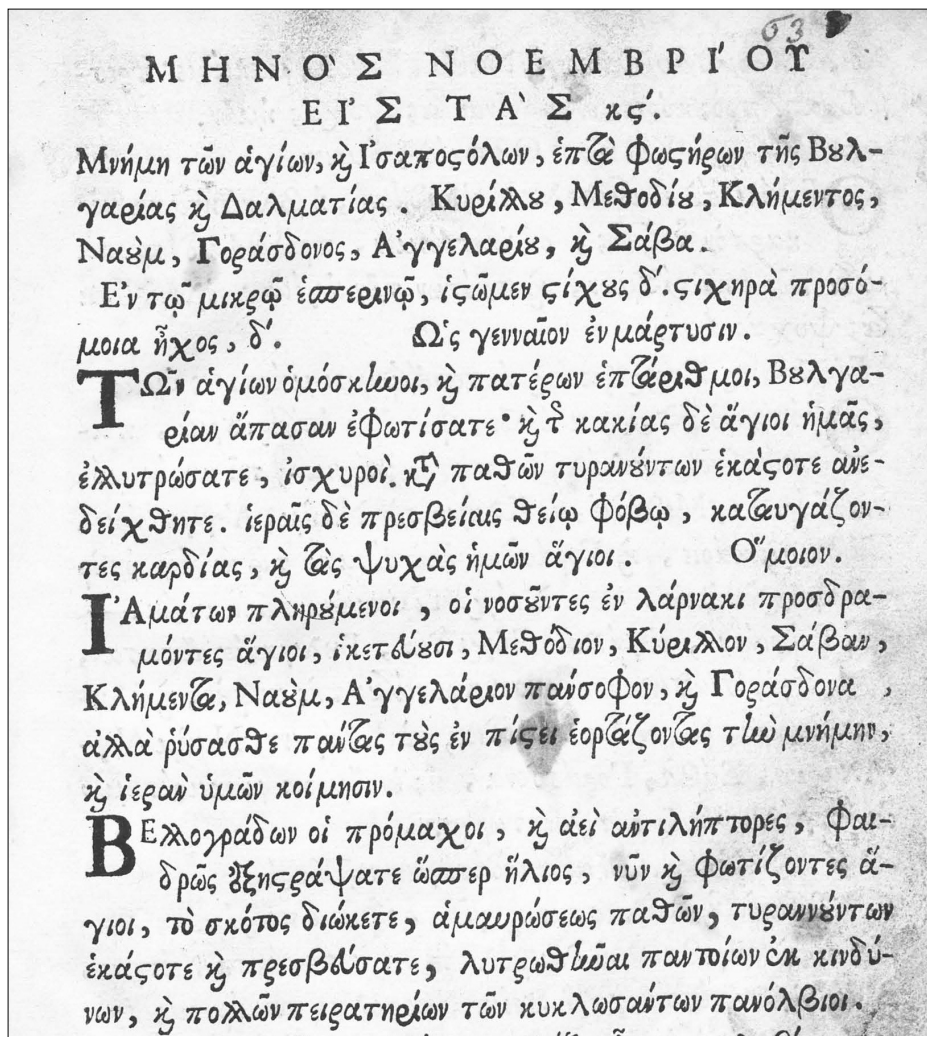 63
ΜΗΝΟ`Σ ΝΟΕΜΒΡΙ´ΟΥ
ΕΙ᾿Σ ΤΑ`Σ κϛ΄.
Μνήμη τῶν ἁγίων, ϗ Ἰσαποϛόλων, ἑπτὰ Φωϛήρων τῆς Βȣλ-
γαρίας ϗ Δαλματίας. Κυρίλλȣ, Μεθοδίȣ, Κλήμεντος,
Ναȣ̀μ, Γοράσδονος, Ἀγγελαρίȣ, ϗ Σάβα.
Ἐν τῷ μικρῷ ἑσπερινῷ, ἱϛῶμεν ϛίχȣς δ΄. ϛιχηρὰ προσό-
μοια ἦχος, δ΄. Ὡς γενναῖον ἐν μάρτυσιν.
ΤΩ͂ν ἁγίων ὁμόσκηνοι, ϗ πατέρων ἑπτάριθμοι, Βȣλγα-
ρίαν ἅπασαν ἐφωτίσατε· ϗ τ̃ κακίας δὲ ἅγιοι ἡμᾶς,
ἐλλυτρώσατε, ἰσχυροὶ κτ̃ παθῶν τυρανȣ́ντων ἑκάϛοτε ἀνε-
δείχθητε. ἱεραῖς δὲ πρεσβείαις θείῳ φόβῳ, καταυγάζον-
τες καρδίας, ϗ τὰς ψυχὰς ἡμῶν ἅγιοι. Ὅμοιον.
Ἰ᾿Αμάτων πληρȣ́μενοι, οἱ νοσȣ͂ντες ἐν λάρνακι προσδρα-
μόντες ἅγιοι, ἱκετεύȣσι, Μεθόδιον, Κύριλλον, Σάβαν,
Κλήμεντα, Ναȣ̀μ, Ἀγγελάριον πάνσοφον, ϗ Γοράσδονα,
ἀλλὰ ῥύσασθε πάντας τȣ̀ς ἐν πίϛει ἑορτάζοντας τὴν μνήμην,
ϗ ἱερὰν ὑμῶν κοίμησιν.
ΒΕλλογράδων οἱ πρόμαχοι, ϗ ἀεὶ ἀντιλήπτορες, Φαι-
δρῶς ἐξηϛράψατε ὥσπερ ἥλιος, νῦν ϗ φωτίζοντες ἅ-
γιοι, τὸ σκότος διώκετε, ἀμαυρώσεως παθῶν, τυραννȣ́ντων
ἑκάϛοτε ϗ πρεσβεύσατε, λυτρωθῆναι παντοίων ἐκ κινδύ-
νων, ϗ πολλῶν πειρατηρίων τῶν κυκλωσάντων πανόλβιοι.